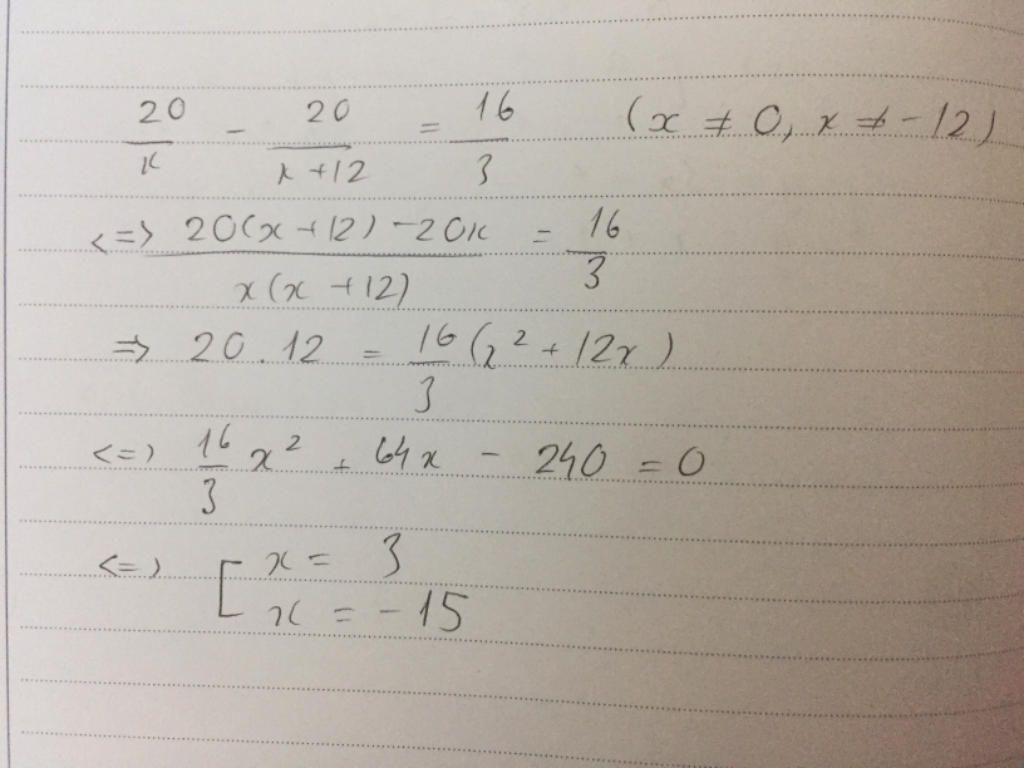 20/x - 20/(x+12) = 16/3 (x ≠ 0, x ≠ -12)
<=> (20(x+12) - 20x)/(x(x+12)) = 16/3
=> 20.12 = 16/3 (x² + 12x)
<=> 16/3 x² + 64x - 240 = 0
<=> [ x = 3
x = -15